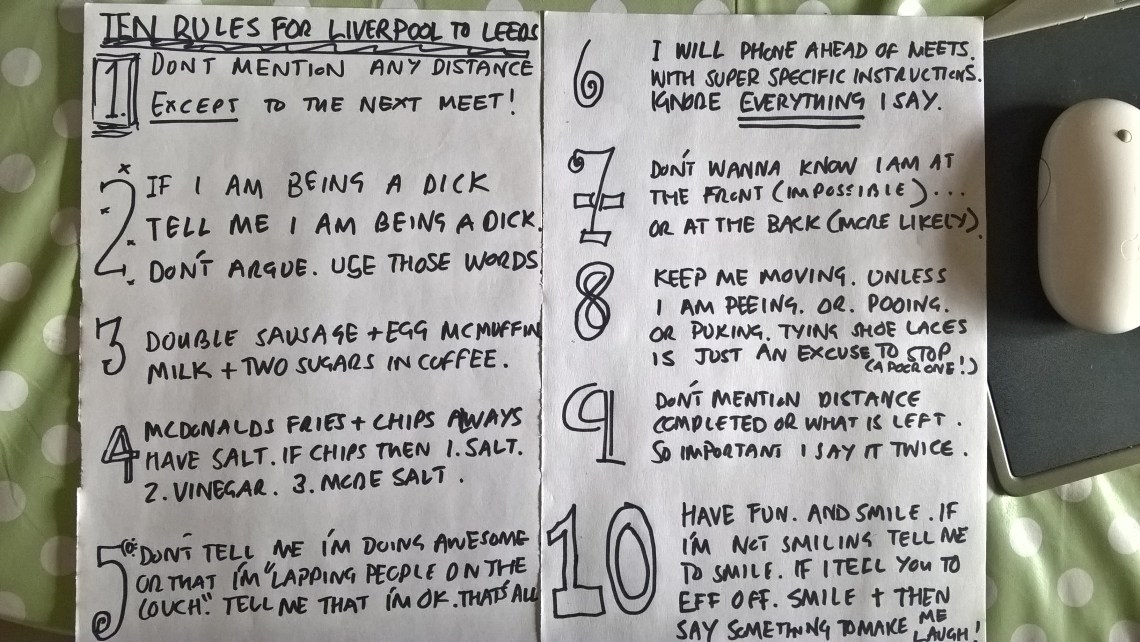 TEN RULES FOR LIVERPOOL TO LEEDS
1. DONT MENTION ANY DISTANCE
EXCEPT TO THE NEXT MEET!
2 IF I AM BEING A DICK
TELL ME I AM BEING A DICK.
DON'T ARGUE. USE THOSE WORDS
3 DOUBLE SAUSAGE + EGG MCMUFFIN
MILK + TWO SUGARS IN COFFEE.
4 MCDONALDS FRIES + CHIPS AWAYS
HAVE SALT. IF CHIPS THEN 1. SALT.
2. VINEGAR. 3. MORE SALT.
5 DON'T TELL ME I'M DOING AWESOME
OR THAT I'M "LAPPING PEOPLE ON THE
COUCH". TELL ME THAT I'M OK. THAT'S ALL
6 I WILL PHONE AHEAD OF MEETS.
WITH SUPER SPECIFIC INSTRUCTIONS.
IGNORE EVERYTHING I SAY.
7 DON'T WANNA KNOW I AM AT
THE FRONT (IMPOSSIBLE)...
OR AT THE BACK (MORE LIKELY).
8 KEEP ME MOVING. UNLESS
I AM PEEING. OR. POOING.
OR PUKING. TYING SHOE LACES
IS JUST AN EXCUSE TO STOP
(A POOR ONE!)
9 DON'T MENTION DISTANCE
COMPLETED OR WHAT IS LEFT.
SO IMPORTANT I SAY IT TWICE.
10 HAVE FUN. AND SMILE. IF
I'M NOT SMILING TELL ME
TO SMILE. IF I TELL YOU TO
EFF OFF. SMILE + THEN
SAY SOMETHING TO MAKE ME
LAUGH!